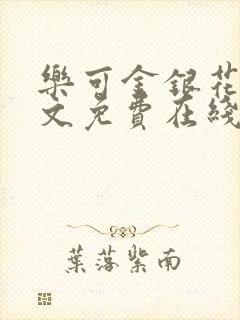 樂可金銀花
文免費在綫
葉落紫南